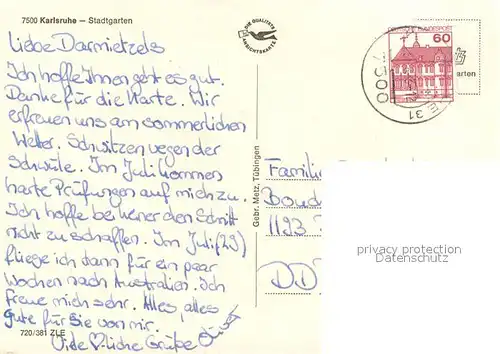 7500 Karlsruhe — Stadtgarten
DIE QUALITÄTS
ANSICHTSKARTE
Liebe Darmietzels
Ich hoffe Ihnen geht es gut.
Danke für die Karte. Wir
erfreuen uns am sommerlichen
Wetter. Schwitzen wegen der
Schwüle. Im Juli kommen
harte Prüfungen auf mich zu.
Ich hoffe bei einer den Schnitt
nicht zu schaffen. Im Juli (29)
fliege ich dann für ein paar
Wochen nach Australien. Ich
freue mich sehr. Alles, alles
Gute für Sie von mir.
Viele ♡liche Grüße
720/381 ZLE
Gebr. Metz, Tübingen
60
BUNDESPOST
7500
31
arten
Familie
1193
DD
privacy protection
Datenschutz